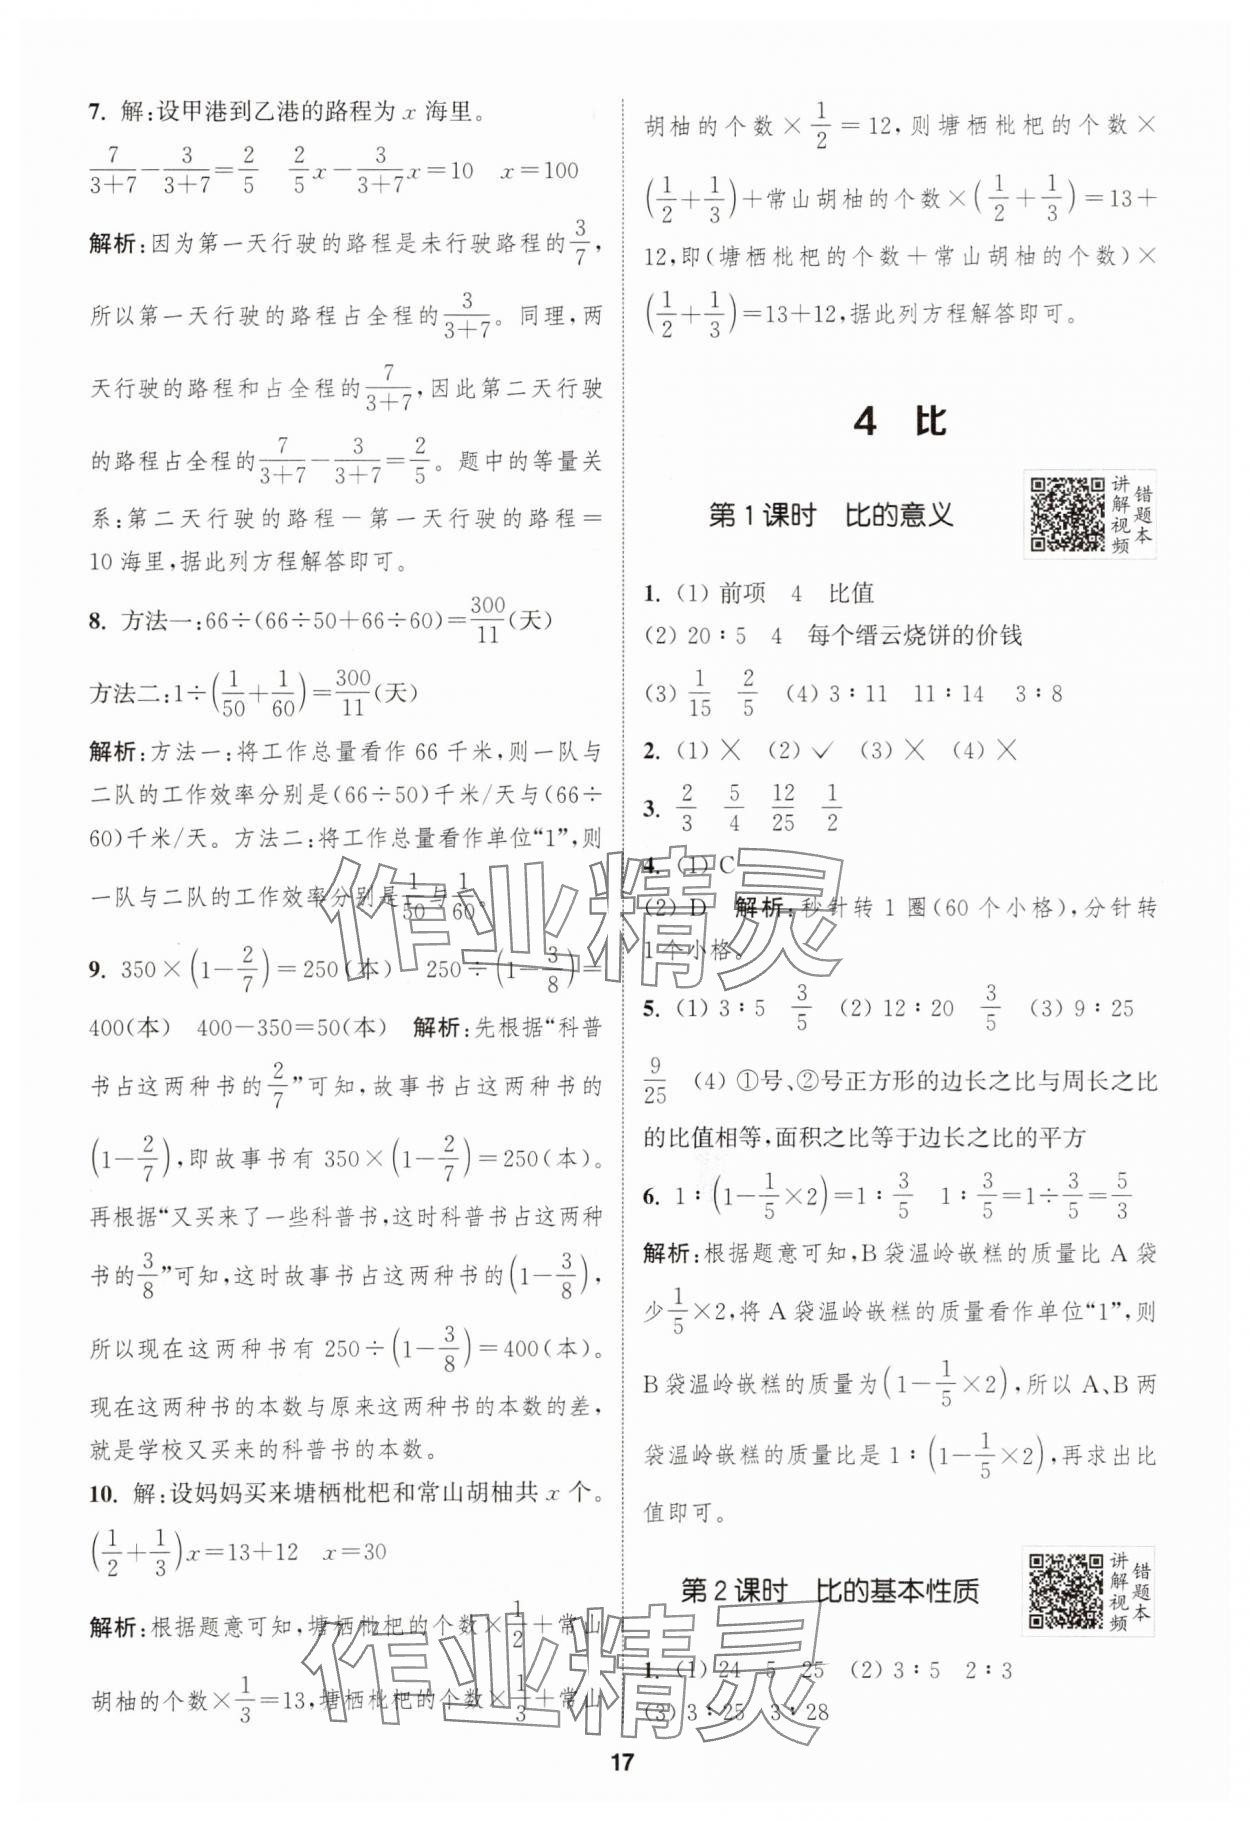 7. 解:设甲港到乙港的路程为 x 海里。
7/(3+7)−3/(3+7)=2/5　2/5x−3/(3+7)x=10　x=100
解析:因为第一天行驶的路程是未行驶路程的3/7,
所以第一天行驶的路程占全程的3/(3+7)。同理,两
天行驶的路程和占全程的7/(3+7),因此第二天行驶
的路程占全程的7/(3+7)−3/(3+7)=2/5。题中的等量关
系:第二天行驶的路程−第一天行驶的路程=
10 海里,据此列方程解答即可。
8. 方法一:66÷(66÷50+66÷60)=300/11(天)
方法二:1÷(1/50+1/60)=300/11(天)
解析:方法一:将工作总量看作 66 千米,则一队与
二队的工作效率分别是(66÷50)千米/天与(66÷
60)千米/天。方法二:将工作总量看作单位“1”,则
一队与二队的工作效率分别是1/50与1/60。
9. 350×(1−2/7)=250(本)　250÷(1−3/8)=
400(本)　400−350=50(本)　解析:先根据“科普
书占这两种书的2/7”可知,故事书占这两种书的
(1−2/7),即故事书有 350×(1−2/7)=250(本)。
再根据“又买来了一些科普书,这时科普书占这两种
书的3/8”可知,这时故事书占这两种书的(1−3/8),
所以现在这两种书有 250÷(1−3/8)=400(本)。
现在这两种书的本数与原来这两种书的本数的差,
就是学校又买来的科普书的本数。
10. 解:设妈妈买来塘栖枇杷和常山胡柚共 x 个。
(1/2+1/3)x=13+12　x=30
解析:根据题意可知,塘栖枇杷的个数×1/2+常山
胡柚的个数×1/3=13,塘栖枇杷的个数×1/3+常山
胡柚的个数×1/2=12,则塘栖枇杷的个数×
(1/2+1/3)+常山胡柚的个数×(1/2+1/3)=13+
12,即(塘栖枇杷的个数+常山胡柚的个数)×
(1/2+1/3)=13+12,据此列方程解答即可。
4　比
第 1 课时　比的意义
讲解视频
错题本
1. (1) 前项　4　比值
(2) 20∶5　4　每个缙云烧饼的价钱
(3) 1/15　2/5　(4) 3∶11　11∶14　3∶8
2. (1) ✕　(2) ✓　(3) ✕　(4) ✕
3. 2/3　5/4　12/25　1/2
4. (1) C
(2) D　解析:秒针转 1 圈(60 个小格),分针转
1 个小格。
5. (1) 3∶5　3/5　(2) 12∶20　3/5　(3) 9∶25
9/25　(4) ①号、②号正方形的边长之比与周长之比
的比值相等,面积之比等于边长之比的平方
6. 1∶(1−1/5×2)=1∶3/5　1∶3/5=1÷3/5=5/3
解析:根据题意可知,B 袋温岭嵌糕的质量比 A 袋
少1/5×2,将 A 袋温岭嵌糕的质量看作单位“1”,则
B 袋温岭嵌糕的质量为(1−1/5×2),所以 A、B 两
袋温岭嵌糕的质量比是 1∶(1−1/5×2),再求出比
值即可。
第 2 课时　比的基本性质
讲解视频
错题本
1. (1) 24　5　25　(2) 3∶5　2∶3
(3) 3∶25　3∶28
作业精灵
作业精灵
17